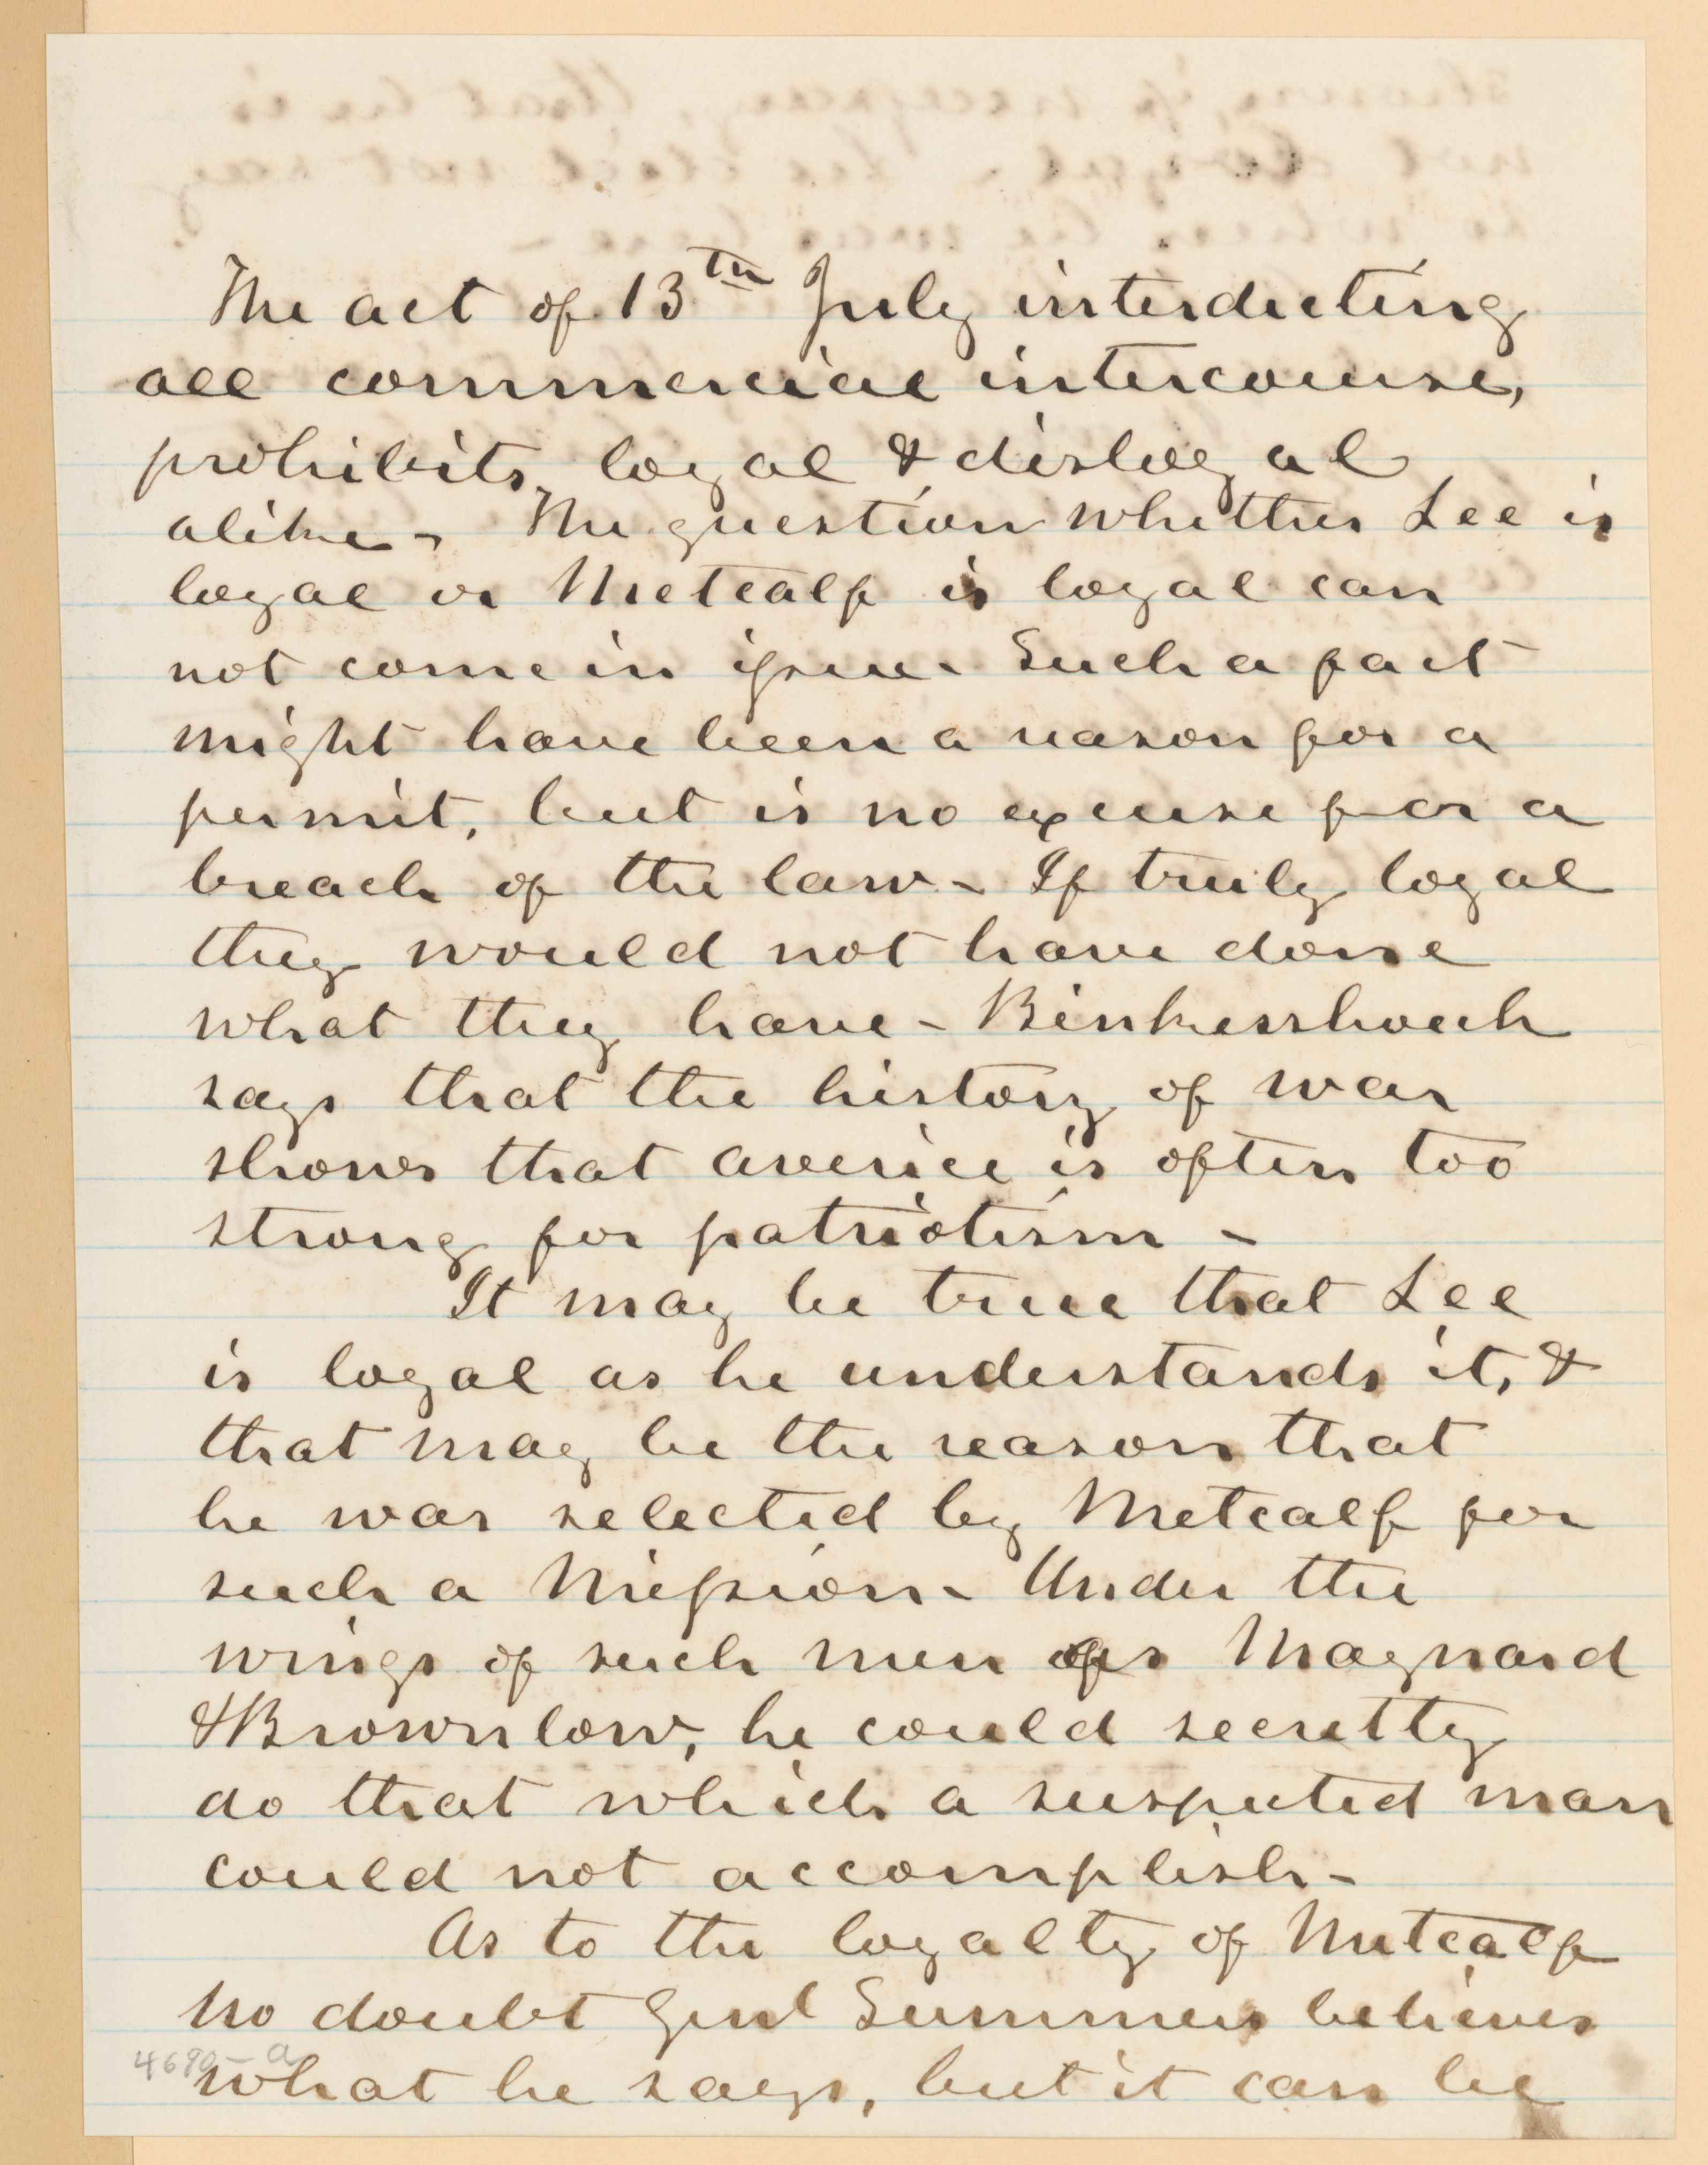 The act of 13th July interdicting
all commercial intercourse,
prohibits loyal & disloyal
alike - The question whether Lee is
loyal or Metcalf is loyal can
not come in issue. Such a fact
might have been a reason for a
permit, but is no excuse for a
breach of the law - If truly loyal
they would not have done
what they have - Binkersshoeck
says that the history of war
shows that avarice is often too
strong for patriotism -
It may be true that Lee
is loyal as he understands it, &
that may be the reason that
he was selected by Metcalf for
such a Mission - Under the
wings of such men as Maynard
& Brownlow, he could secretly
do that which a suspected man
could not accomplish -
As to the loyalty of Metcalf
no doubt Genl Summers believes
what he says, but it can be
4690-a